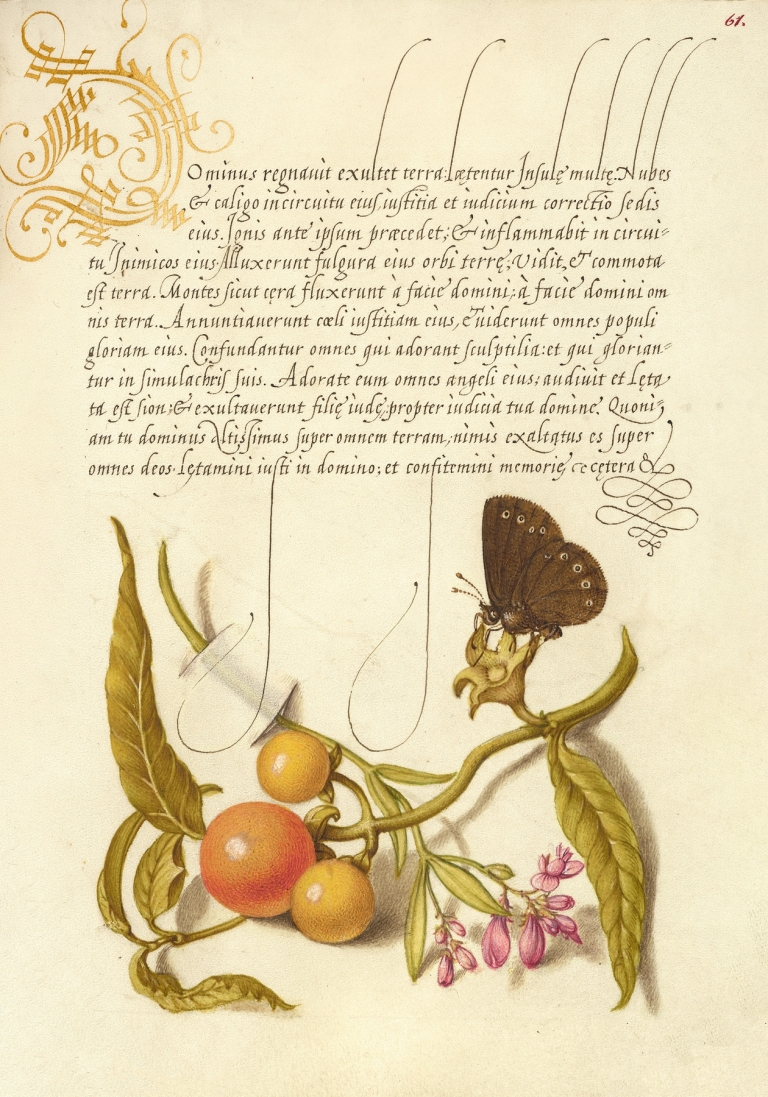 61.
Dominus regnauit exultet terra: lætentur Insulę multę. Nubes
& caligo in circuitu eius, iustitia et iudicium correctio sedis
eius. Ignis ante ipsum præcedet; & inflammabit in circui-
tu Inimicos eius. Alluxerunt fulgura eius orbi terrę; Vidit, & commota
est terra. Montes sicut cęra fluxerunt à facie domini; à facie domini om
nis terra. Annuntiauerunt cæli iustitiam eius, & uiderunt omnes populi
gloriam eius. Confundantur omnes qui adorant sculptilia: et qui glorian-
tur in simulachris suis. Adorate eum omnes angeli eius; audiuit et lęta
ta est sion; & exultauerunt filię iudę, propter iudicia tua domine. Quoni-
am tu dominus Altissimus super omnem terram, nimis exaltatus es super
omnes deos. Lętamini iusti in domino; et confitemini memorię et cętera